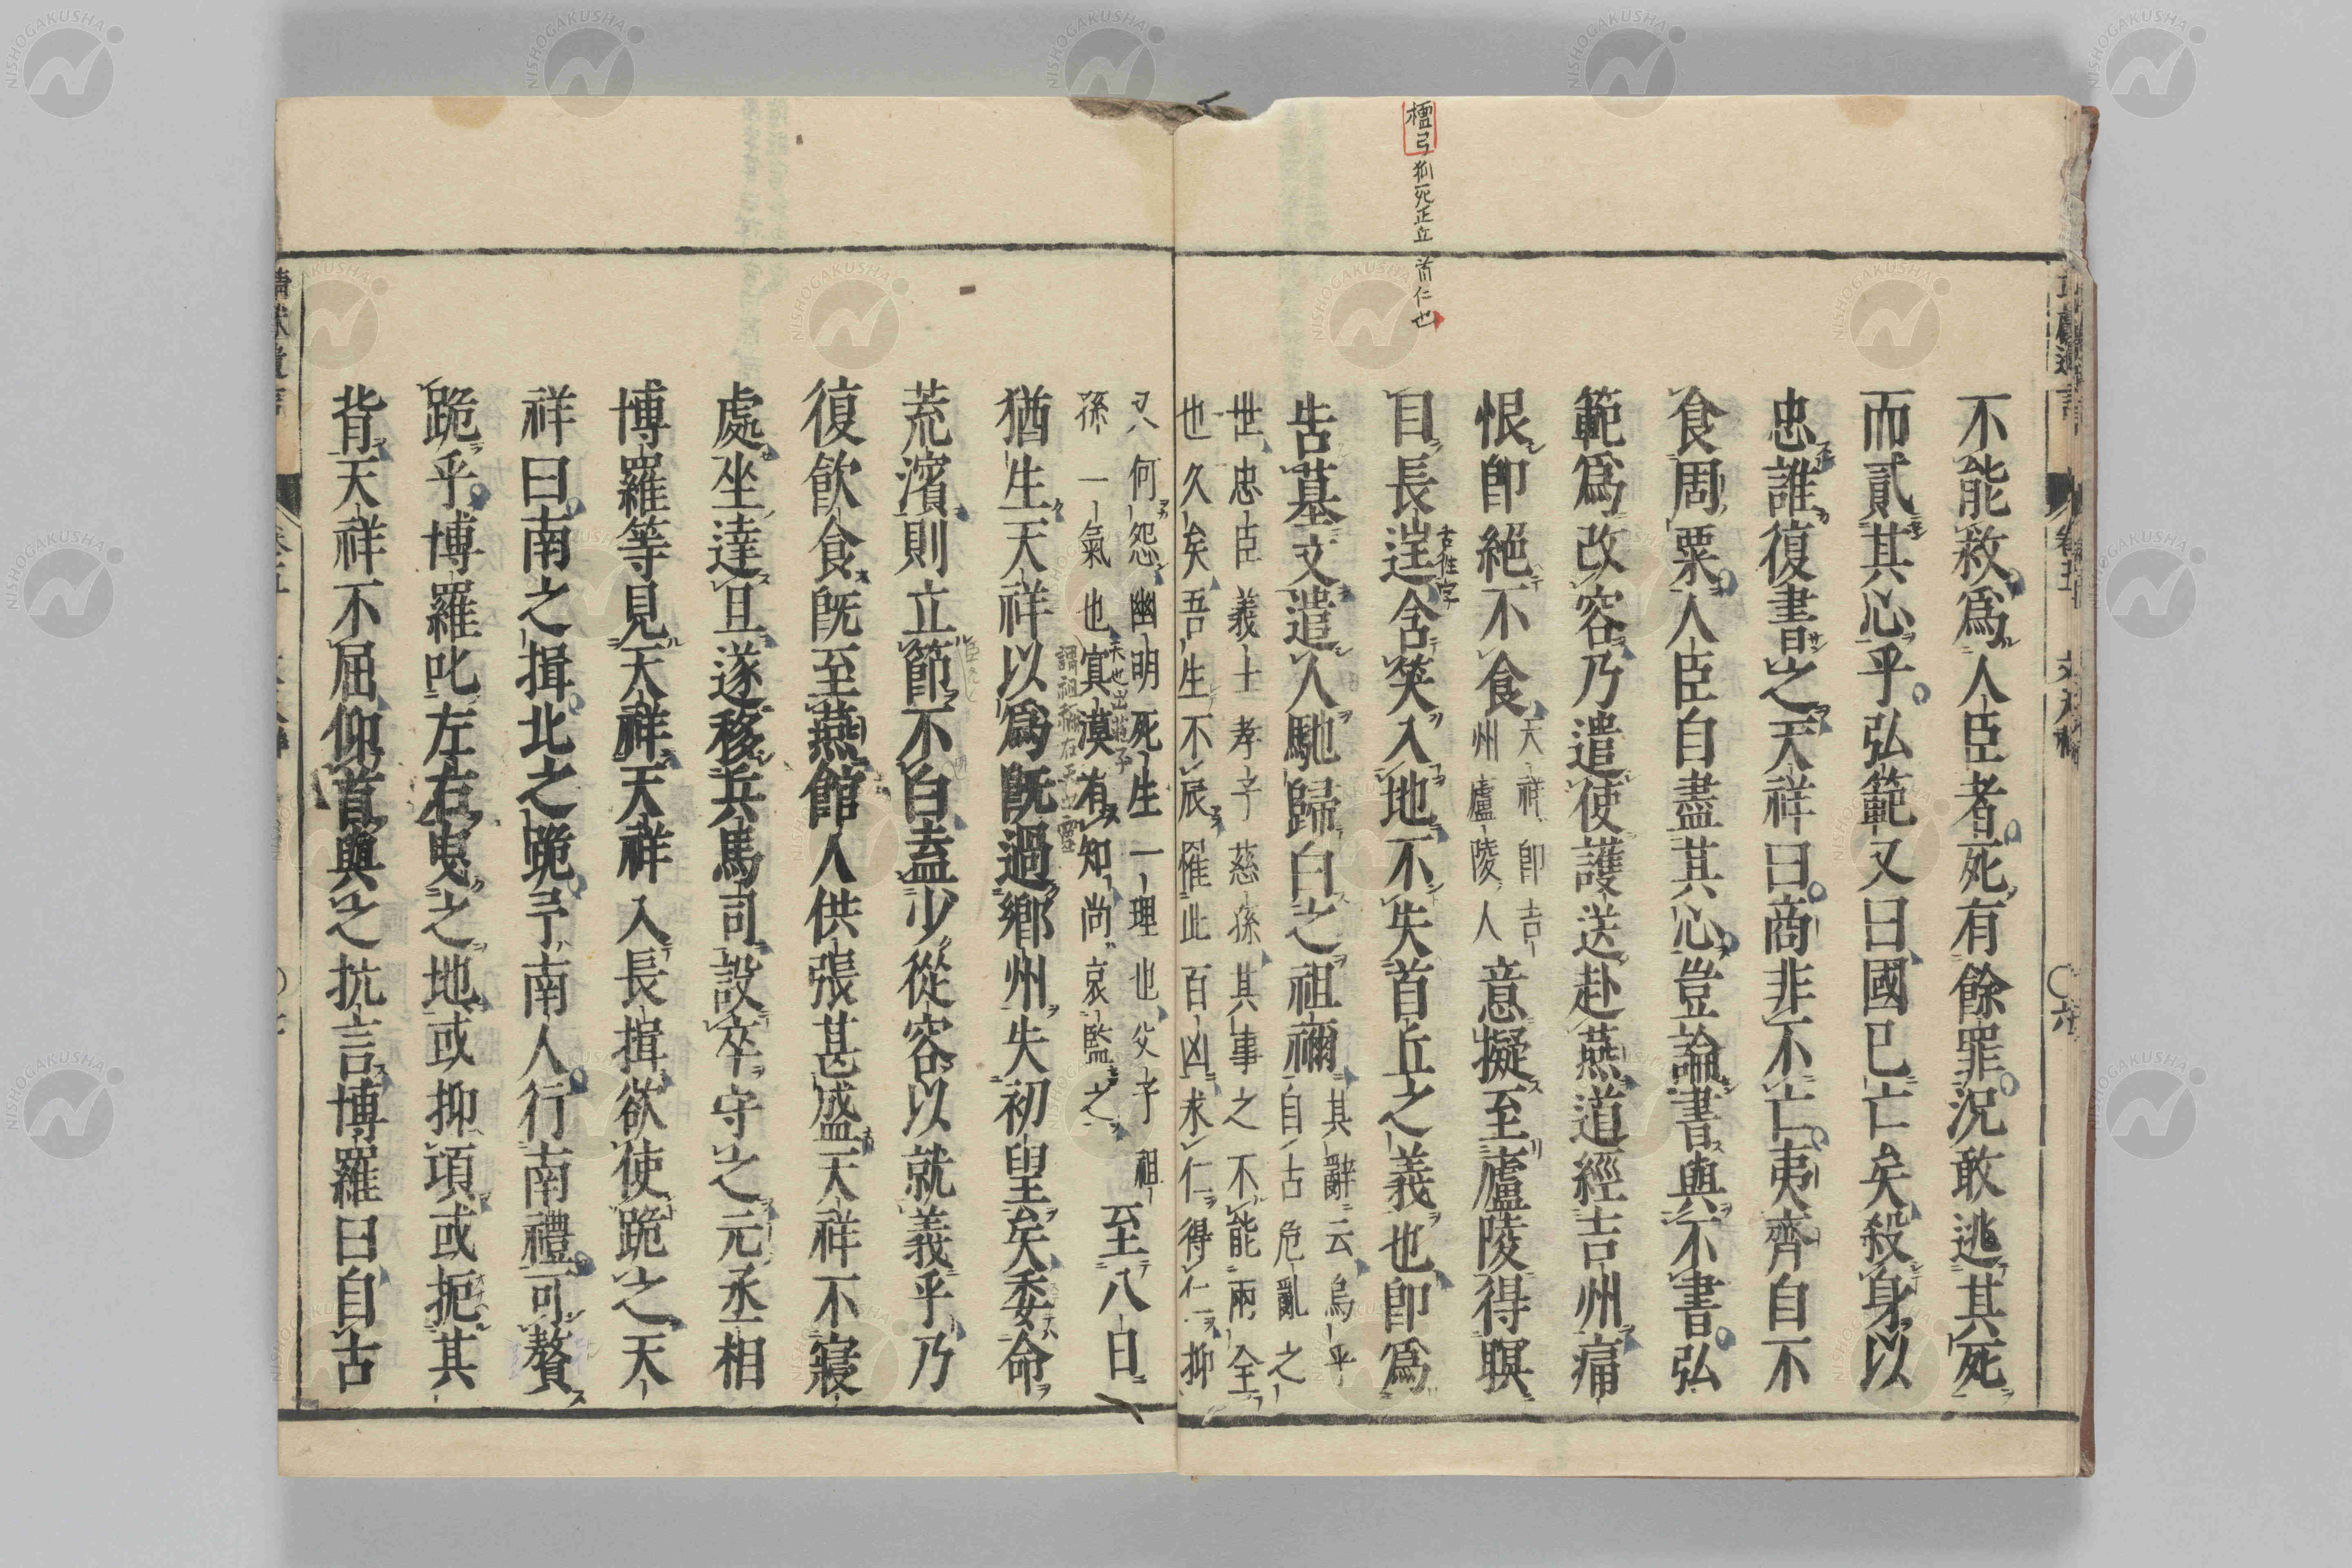 檀弓 狐死正丘首仁也
不能救爲人臣者死有餘罪況敢逃其死
而貳其心乎弘範又曰國已亡矣殺身以
忠誰復書之天祥曰商非不亡夷齊自不
食周粟人臣自盡其心豈論書與不書弘
範爲改容乃遣使護送赴燕道經吉州痛
恨卽絕不食天祥卽吉州廬陵人意擬至廬陵得瞑
目長逞含笑入地不失首丘之義也卽爲
古往字
告墓文遣人馳歸白之祖禰其辭云烏乎自古危亂之
世忠臣義士孝子慈孫其事之不能兩全
也久矣吾生不辰罹此百凶求仁得仁抑
又何怨幽明死生一理也父子祖
孫一氣也冥漠有知尚哀監之至八日
猶生天祥以爲旣過鄉州失初望矣委命
荒濱則立節不白盍少從容以就義乎乃
復飮食旣至燕館人供張甚盛天祥不寢
處坐達旦遂移兵馬司設卒守之元丞相
博羅等見天祥天祥入長揖欲使跪之天
祥曰南之揖北之跪予南人行南禮可贅
跪乎博羅叱左右曳之地或抑項或扼其
背天祥不屈仰首與之抗言博羅曰自古
NISHOGAKUSHA